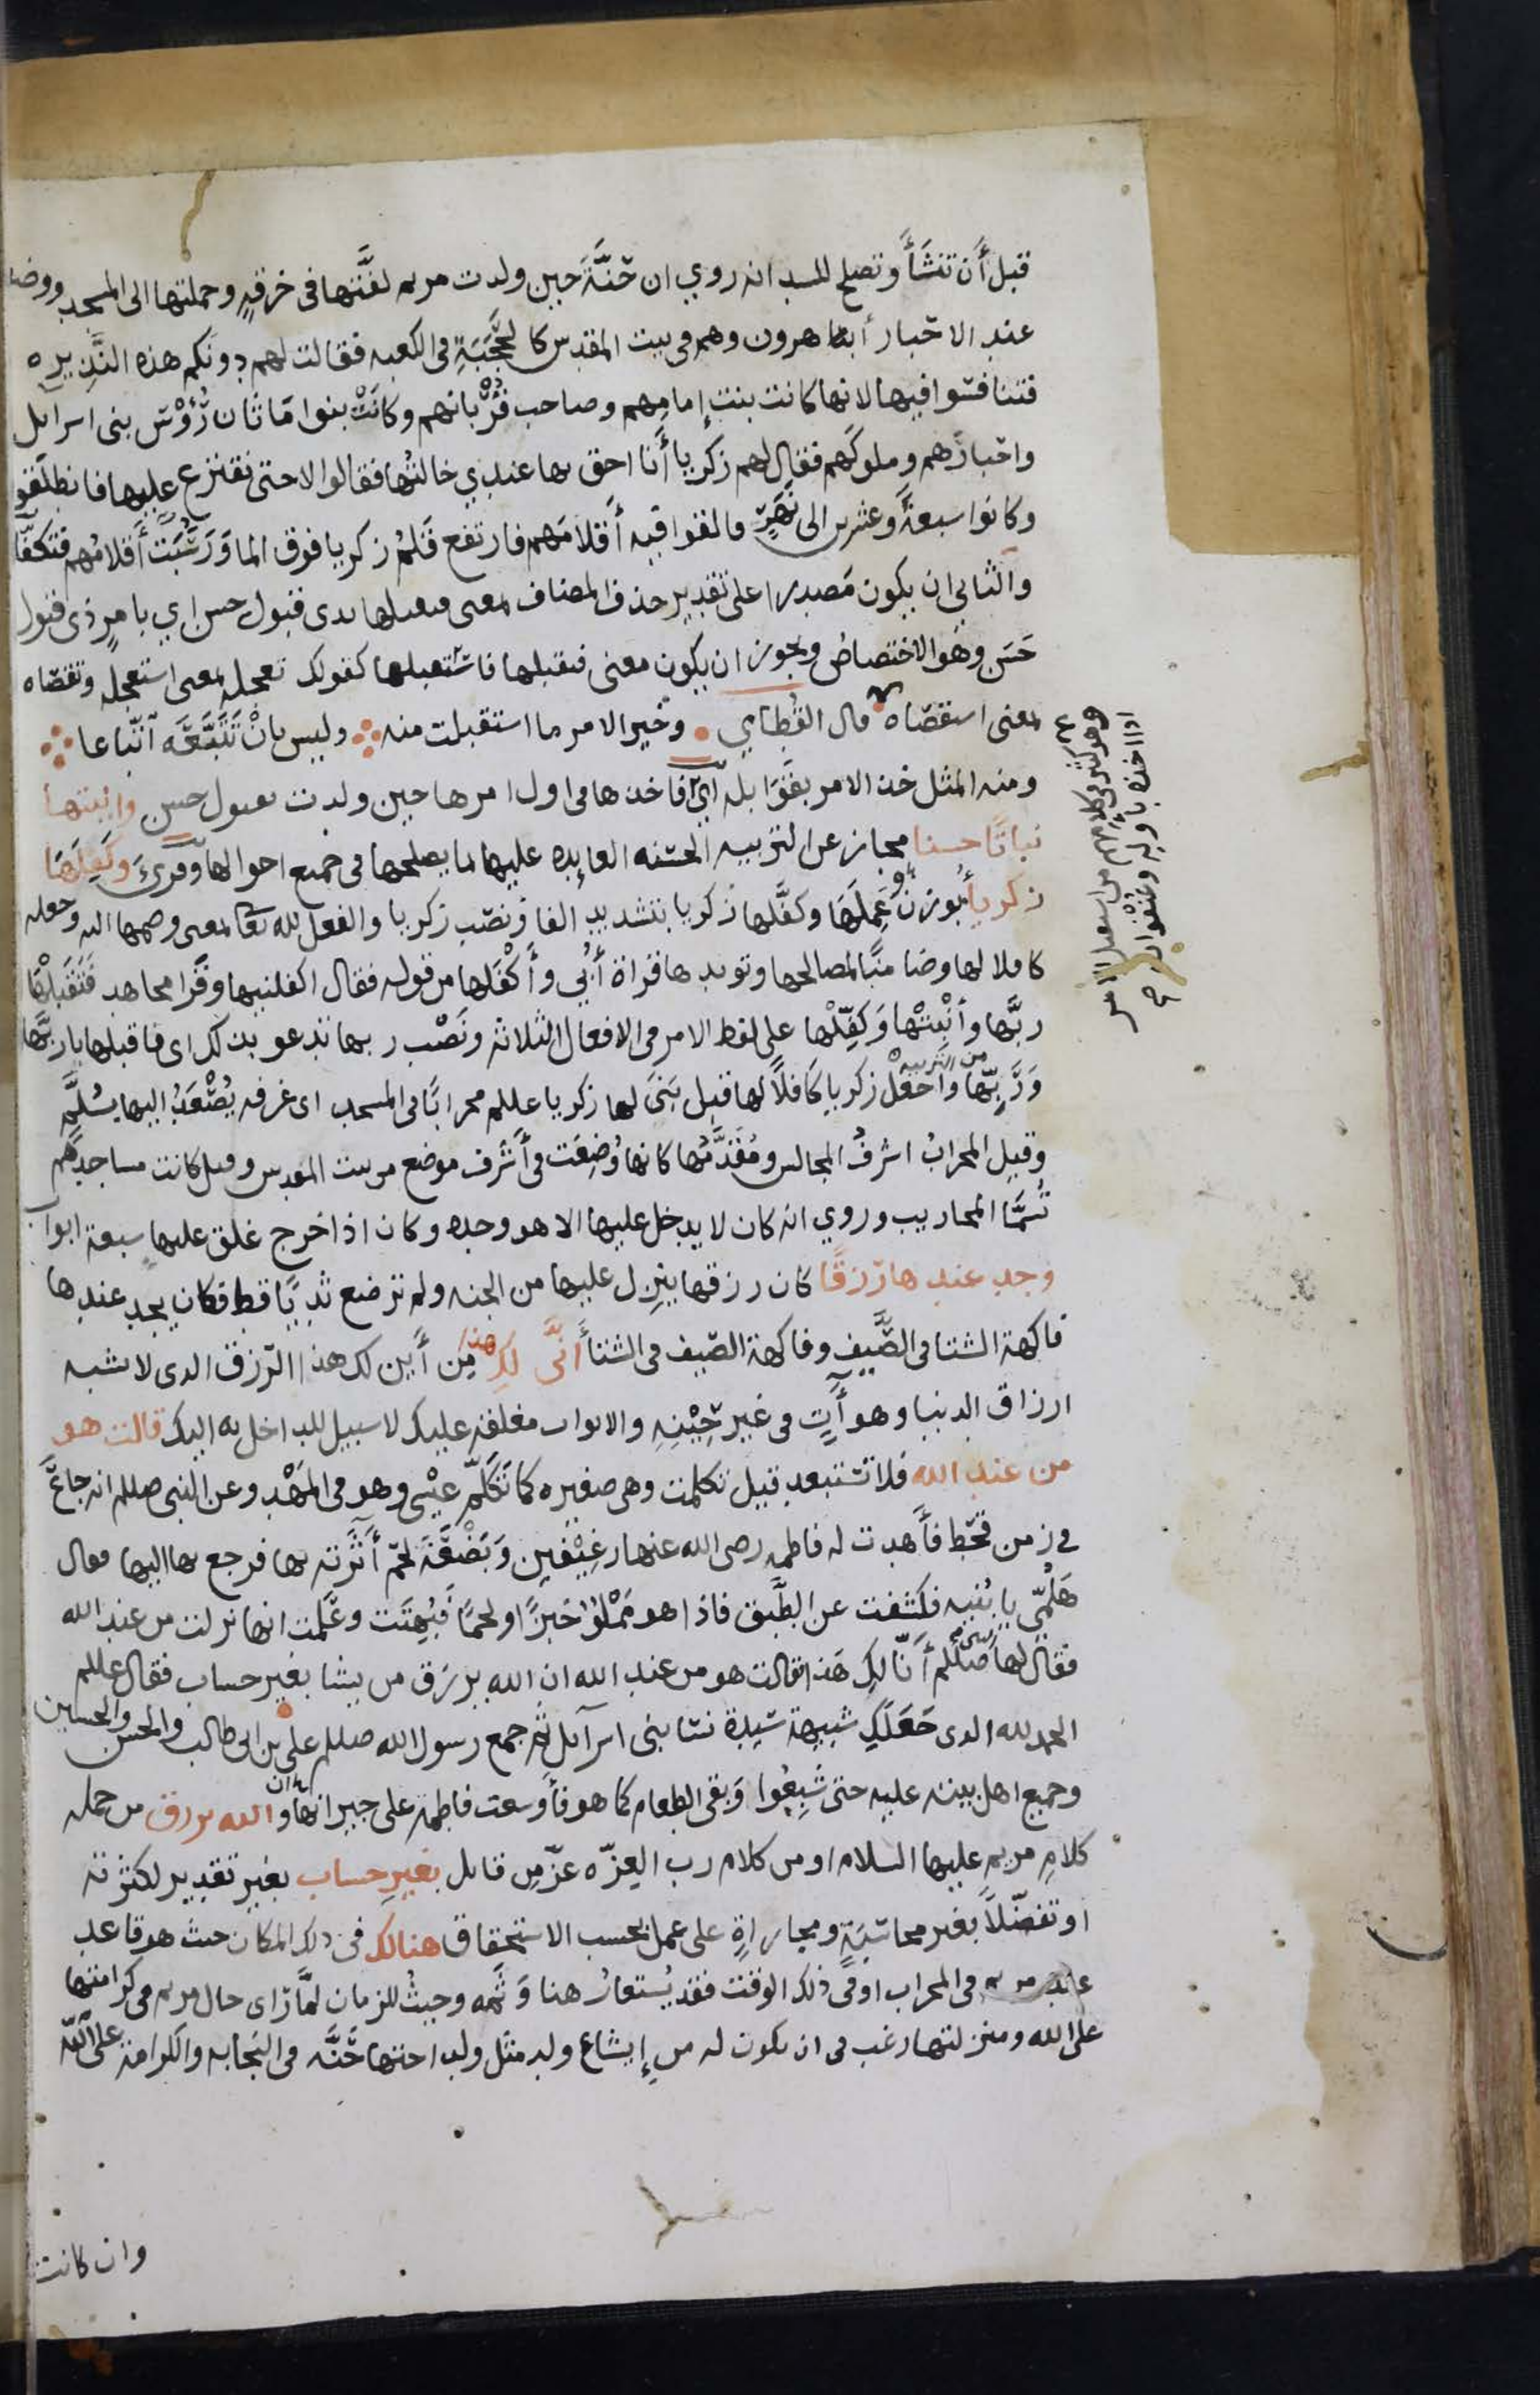 قبل أن تنشأ وتصلح للسدانه روي ان حَنَّةَ حين ولدت مريم لفَّتها فى خرقةٍ وحملتها الى المسجد ووضعتها
عند الاحبار أبنا هرون وهم فى بيت المقدس كالحَجَبَةِ فى الكعبه فقالت لهم دونكم هذه النَّذِيره
فتنافسُوا فيها لانها كانت بنت إمامِهم وصاحب قُرْبانهم وكانَتْ بنوا مَاثَان رُؤسَ بنى اسرايل
واحبارَهم وملوكَهم فقال لهم زكريا أنا احق بها عندي خالتُها فقالوا لا حتى نقترع عليها فانطلقو
وكانوا سبعةً وعشرين الى نَهَرٍ فالقوا فيه أقلامَهم فارتفع قَلَمُ زكريا فوق الما وَرَسَبَت أقلامُهم فتكفَّلَ
والثاني ان يكون مَصدرا على تقدير حذف المضاف بمعنى فتقبلها بذى قبول حسن اي بامرٍ ذى قبول
حَسَنٍ وهُو الاختصاصُ ويجوز ان يكون معنى فتقبلها فاستَقبلها كقولك تعجله بمعنى استعجله وتقصّاه
بمعنى استقصَاه قال القُطامِي وخير الامر ما استقبلت منه وليس بانْ تَتَبَّعَهُ اتّباعا
ومنه المثل خذ الامر بقَوَابله أيْ فاخذها فى اول امرها حين ولدت بقبول حسن وانبتها
نباتًا حسنا مجاز عن التربيه الحسَنه العايده عليها بما يصلحها فى جميع احوالها وقرئ وَكَفِلَهَا
زكريأ بوزن عَمِلَهَا وكفَّلها زكريا بتشديد الفا ونصَب زكريا والفعل لله تعا بمعنى وضمها اليه وجعله
كافلا لها وضامنًا لمصالحها وتويدها قراة أُبَي وأَكْفَلها من قوله فقال اكفلنيها وقَرا مجاهد فَتَقَبَلْهَا
ربَّها وأَنْبِتْهَا وَكَفِّلْها على لفظ الامر فى الافعال الثلاثه ونَصْب ربها تدعو بذلك اى فاقبلها يا ربَّها
وَرَبِّها من التربيه واجعَلْ زكريا كَافلاً لها قيل بَنَى لها زكريا عللم محرابًا فى المسجد اى غرفه يُصْعَدُ اليها بسُلَّمٍ
وقيل المحرابُ اشرفُ المجالس ومُقَدَّمُها كانها وُضِعَت فى أشرف موضع من بيت المقدس وقيل كانت مساجدُهم
تُسمَّا المحاريب وروي انه كان لا يدخل عليها الا هو وحده وكان اذا خرج غلق عليها سبعة ابواب
وجد عندها رزقًا كان رزقها ينزل عليها من الجنه ولم ترضع ثديًا قط فكان يجد عندها
فاكهة الشتا فى الصَّيفِ وفاكهة الصَيف فى الشتأ أنَّى لكِ هذا مِن أَين لك هذا الرّزق الدى لا يشبه
ارزاق الدنيا وهو أتٍ فى غير حِيْنِهِ والابواب مغلقه عليك لا سبيل للداخل به اليك قالت هو
من عند الله فلا تستبعد قيل تكلمت وهى صغيره كما تَكَلَّمَ عيْسى وهو فى المَهْد وعن النبى صللم انه جاعَ
فى زمن قحْط فأَهدت له فاطمه رضى الله عنها رغِيْفين وَبَضْعَةَ لحْمٍ أَثَرته بها فرجع بها اليها فقال
هَلُمِّي يا بُنيه فكشَفت عن الطَّبق فاذا هو مَمْلوٌ خبزًا ولحمًا فَبُهِتَت وعَلمت انها نزلت من عند الله
فقال لها صللم أنّا لكِ هَذا قالت هو من عند الله ان الله يرزق من يشا بغير حساب فقال عللم
الحمد لله الذى جَعَلكِ شبيهة سَيدة نسَا بنى اسرآىل ثم جمع رسول الله صللم على بن ابى طالب والحسن والحسين
وجميع اهل بيته عليه حتى شَبِعُوا وَبقى الطعام كما هو فأوسعت فاطمه على جيرانها وان الله يرزق من جمله
كلامِ مريم عليها السلام او من كلام رب العِزّه عزّ من قايل بغيرِ حساب بغير تقدير لكثرته
او تفضّلاً بغير محاسَبَةٍ ومجاراةٍ على عمل بحسب الاستحقاق هنالك فى ذلك المكان حيث هو قاعد
عند مريم فى المحراب او فى ذلك الوقت فقد يُستعارُ هنا وَثَمه وحيثُ للزمان لمَّا رَاى حال مريم فى كرامتها
على الله ومنزلتها رغب فى ان يكون له من إيشاع ولد مثل ولد اختها حَنَّه فى النَجابه والكرامة على الله
وان كانت
وهو كثير فى كلامهم من استقبل الامر
اذا اخذه باوله وعُنْفوانه